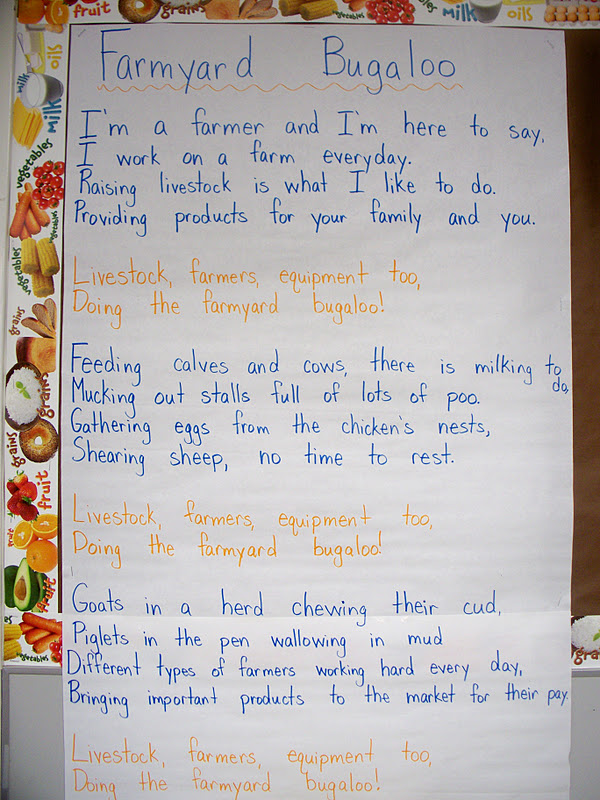 fruit
grains
vegetables
milk
oils
oils
milk
milk
vegetables
vegetables
vegetables
grains
grains
grains
fruit
fruit
fruit
vegetables
Farmyard Bugaloo
I'm a farmer and I'm here to say,
I work on a farm everyday.
Raising livestock is what I like to do.
Providing products for your family and you.
Livestock, farmers, equipment too,
Doing the farmyard bugaloo!
Feeding calves and cows, there is milking to
do,
Mucking out stalls full of lots of poo.
Gathering eggs from the chicken's nests,
Shearing sheep, no time to rest.
Livestock, farmers, equipment too,
Doing the farmyard bugaloo!
Goats in a herd chewing their cud,
Piglets in the pen wallowing in mud
Different types of farmers working hard every day,
Bringing important products to the market for their pay.
Livestock, farmers, equipment too,
Doing the farmyard bugaloo!